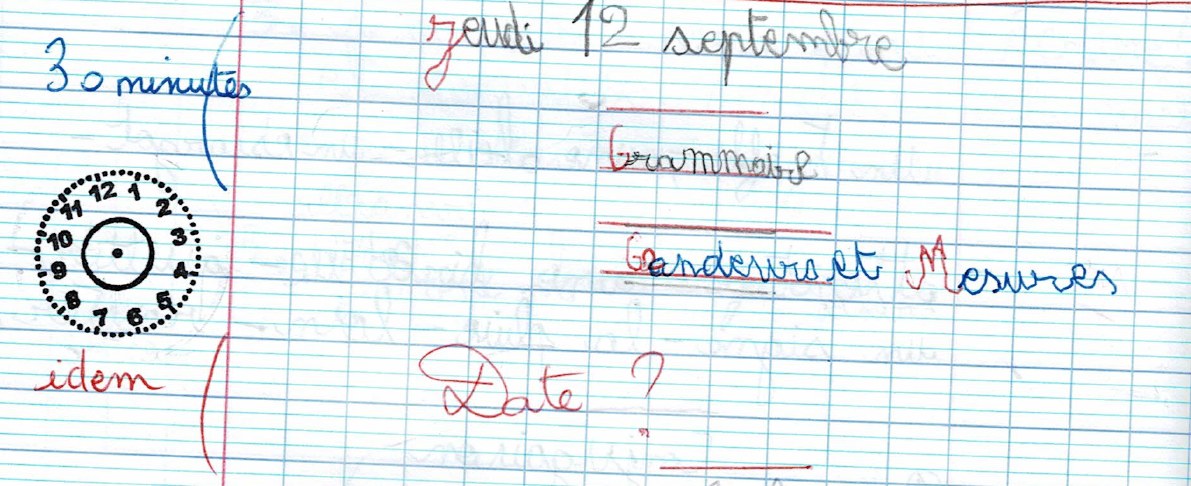 jeudi 12 septembre
30 minutes
Grammaire
12 1 2 3 4 5 6 7 8 9 10 11
Grandeurs et Mesures
idem
Date ?